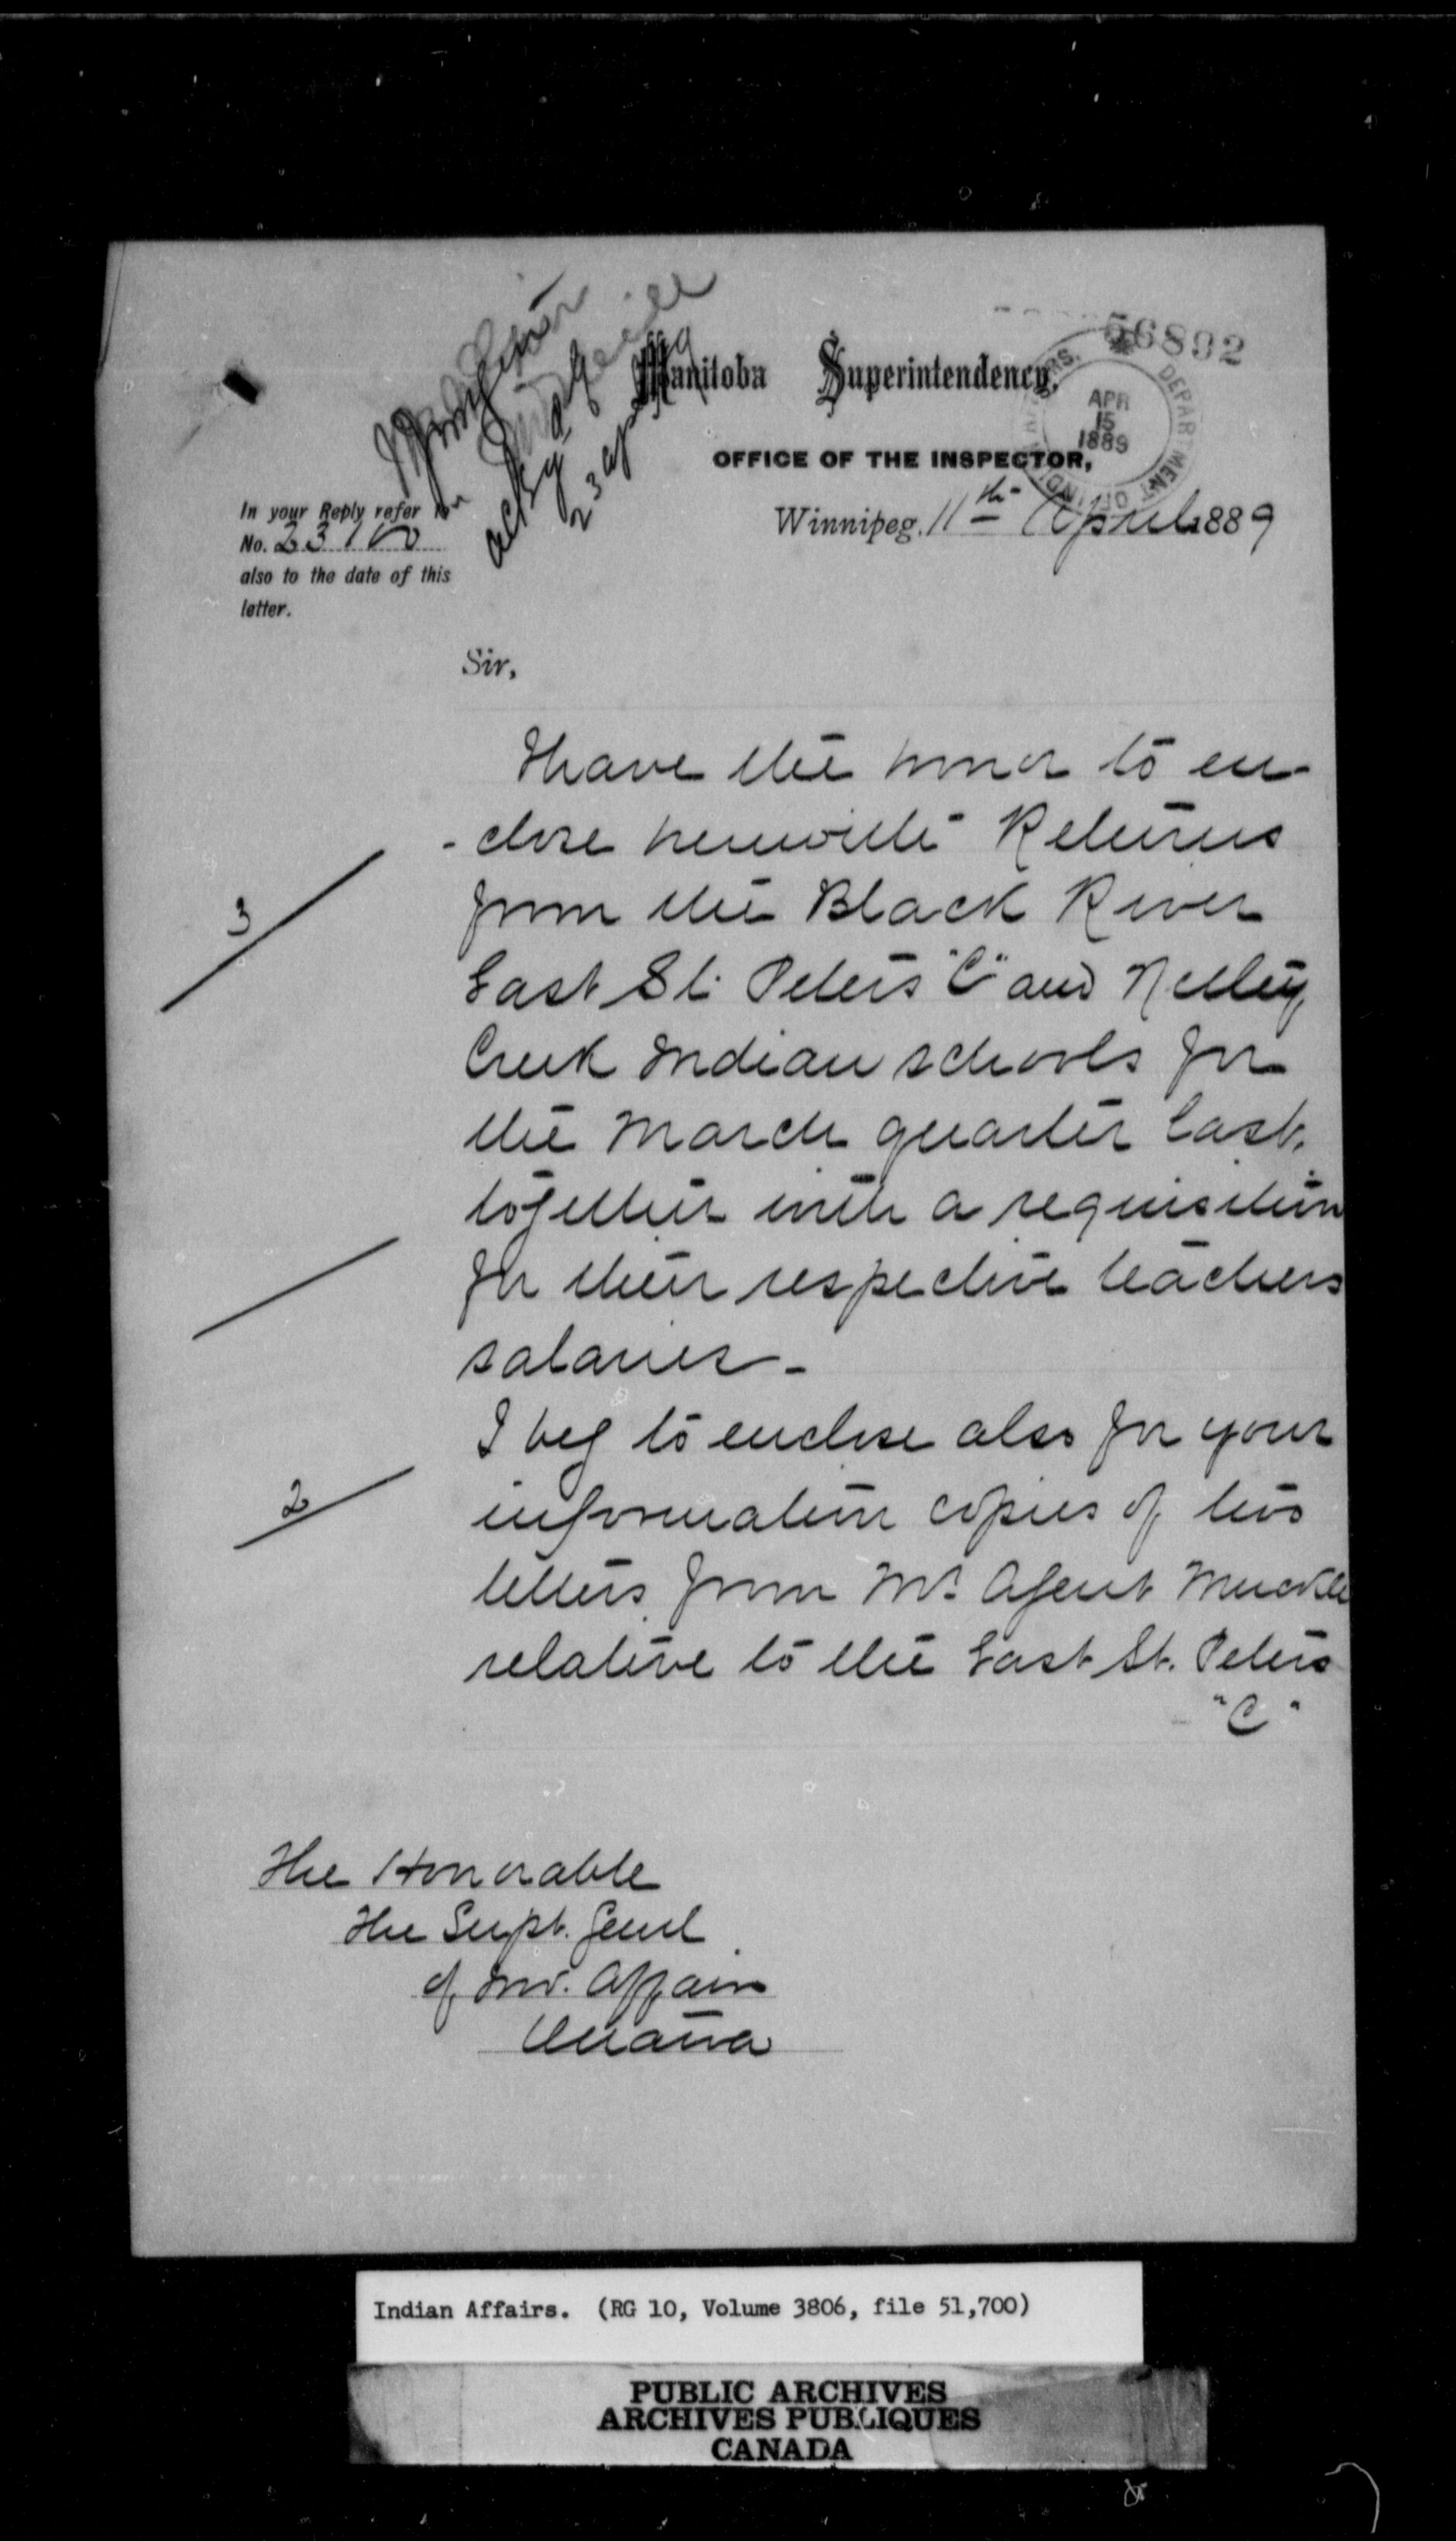 56892
Manitoba Superintendency.
DEPARTMENT OF INDIAN AFFAIRS.
APR
15
1889
OFFICE OF THE INSPECTOR,
Winnipeg. 11th April 1889
In your Reply refer to
No.
also to the date of this
letter.
23 Apl
Sir,
I have the honor to en-
-close herewith Returns
from the Black River
East St. Peters "C" and Netley
Creek Indian schools for
the March quarter last,
together with a requisition
for their respective teachers
salaries-
I beg to enclose also for your
information copies of two
letters from Mr. Agent Muckle
relative to the East St. Peters
"C"
3
2
The Honorable
The Supt. Genl
of Ind. Affairs
Ottawa
Indian Affairs. (RG 10, Volume 3806, file 51,700)
PUBLIC ARCHIVES
ARCHIVES PUBLIQUES
CANADA